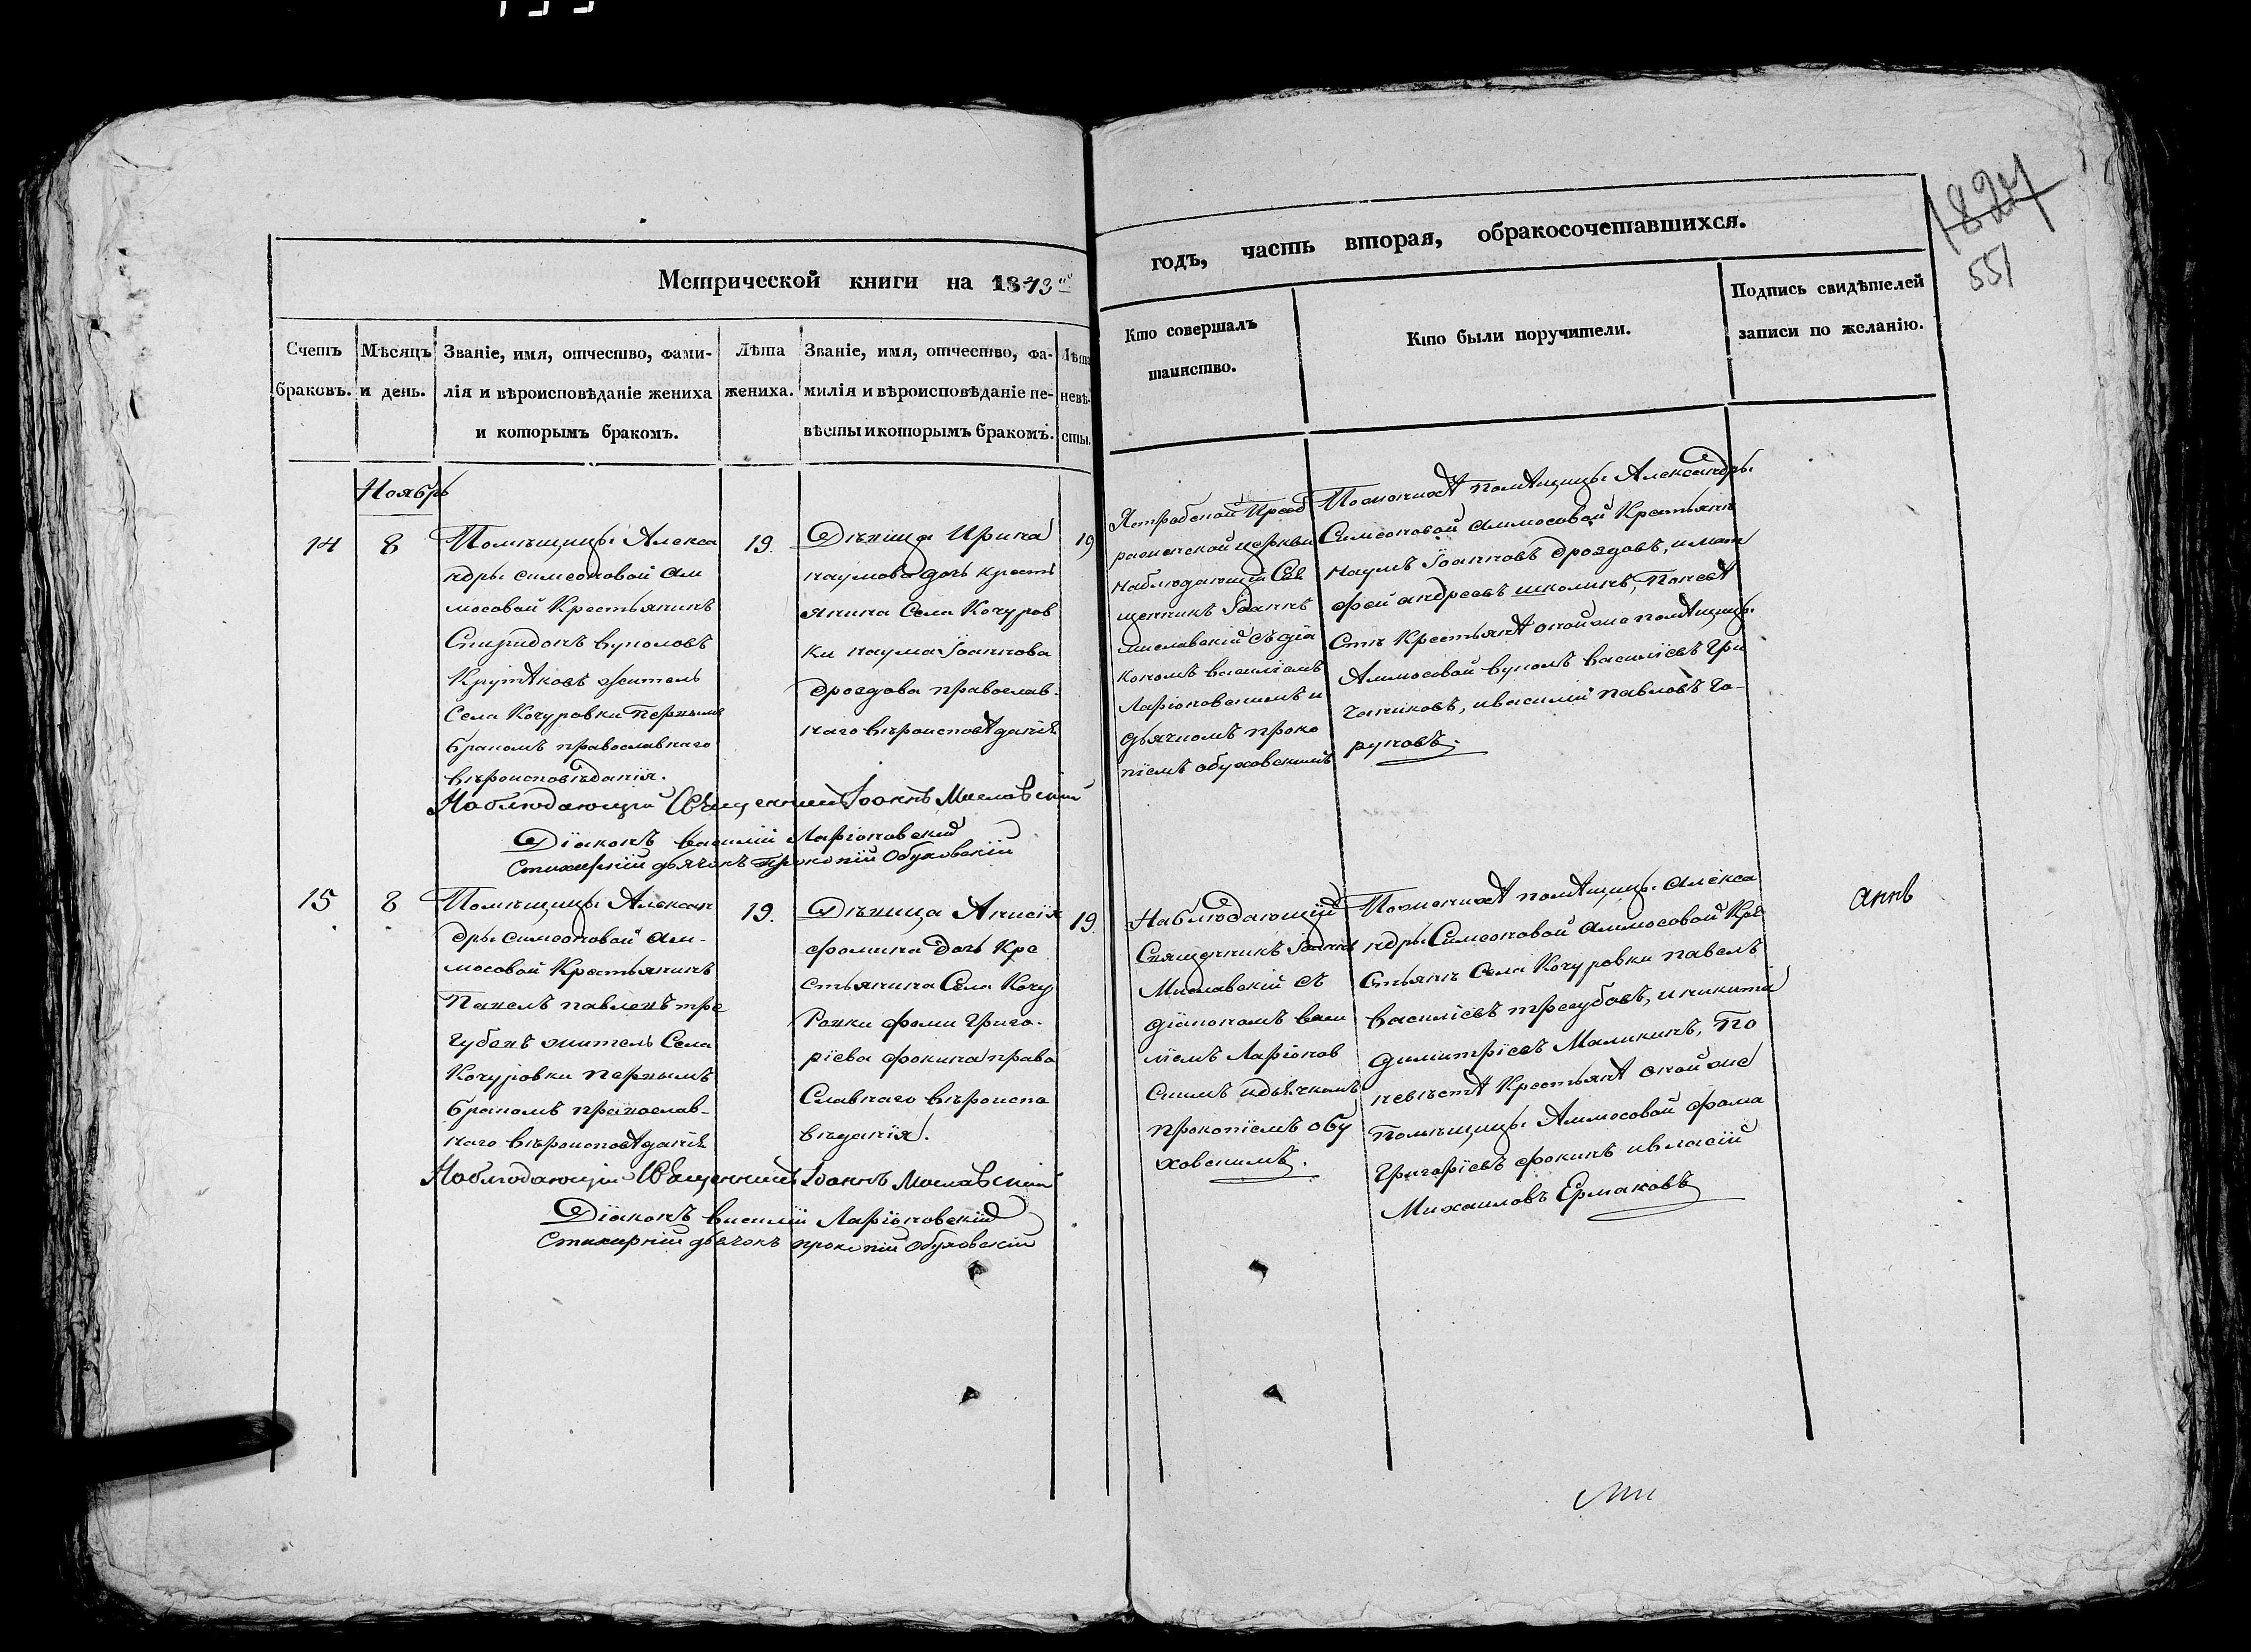 1827
551
Метрической книги на 1843й
годъ, часть вторая, обракосочетавшихся.
Счетъ
браковъ.
Мѣсяцъ
и день.
Званіе, имя, отчество, фами-
лія и вѣроисповѣданіе жениха
и которымъ бракомъ.
Лѣта
жениха.
Званіе, имя, отчество, фа-
милія и вѣроисповѣданіе не-
вѣсты и которымъ бракомъ.
Лѣта
невѣ-
сты.
Кто совершалъ
таинство.
Кто были поручители.
Подпись свидѣтелей
записи по желанію.
Ноябрь
14
8
Помѣщицы Алекса
ндры симеоновой Ам
мосовой Крестьянинъ
Спиридонъ вуколовъ
житель
Села Кочуровки Первымъ
бракомъ православнаго
вѣроисповѣданія.
19.
Дѣвица Ирина
наумова дочь крестъ
янина Села Кочуров
ки наума Іоаннова
дроздова православ-
наго вѣроисповѣданія
19
Преоб
раженской церкви
наблюдающій Свя
щенникъ Іоаннъ
миславскій съ діа
кономъ василіемъ
Ларіоновскимъ и
дьячкомъ проко
піемъ обуховскимъ
По женихѣ помѣщицы Александры
Симеоновой аммосовой Крестьяне
наумъ Іоанновъ дроздовъ, и мат
фей андреевъ школинъ, По невѣ
стѣ Крестьянѣ оной же помѣщицы
Аммосовой вуколъ василіевъ Гри
и василій павловъ Го-
руновъ.
Наблюдающій Священникъ Іоаннъ Миславскій
Діаконъ василій Ларіоновскій
Стихарный дьячокъ прокопій Обуховскій
15
8
Помѣщицы Алексан
дры симеоновой ам-
мосовой Крестьянинъ
Павелъ павловъ тре
губовъ житель Села
Кочуровки первымъ
бракомъ православ-
наго вѣроисповѣданія
19.
Дѣвица Анисія
фомина дочь Кре
стьянина Села Кочу
ровки фомы Григо-
ріева фокина право
Славнаго вѣроиспо
вѣданія.
19.
Наблюдающій
Священникъ Іоаннъ
Миславскій съ
діакономъ васи
ліемъ Ларіонов
скимъ и дьячкомъ
прокопіемъ обу
ховскимъ.
По женихѣ помѣщицы алекса
ндры Симеоновой аммосовой Кре
стьяне Села Кочуровки павелъ
василіевъ трегубовъ, и никита
димитріевъ Маликинъ, По
невѣстѣ Крестьянѣ оной же
Помѣщицы Аммосовой фома
Григоріевъ фокинъ и власій
Михаиловъ Ермаковъ
Наблюдающій Священникъ Іоаннъ Миславскій
Діаконъ василій Ларіоновскій
Стихарный дьячокъ прокопій Обуховскій